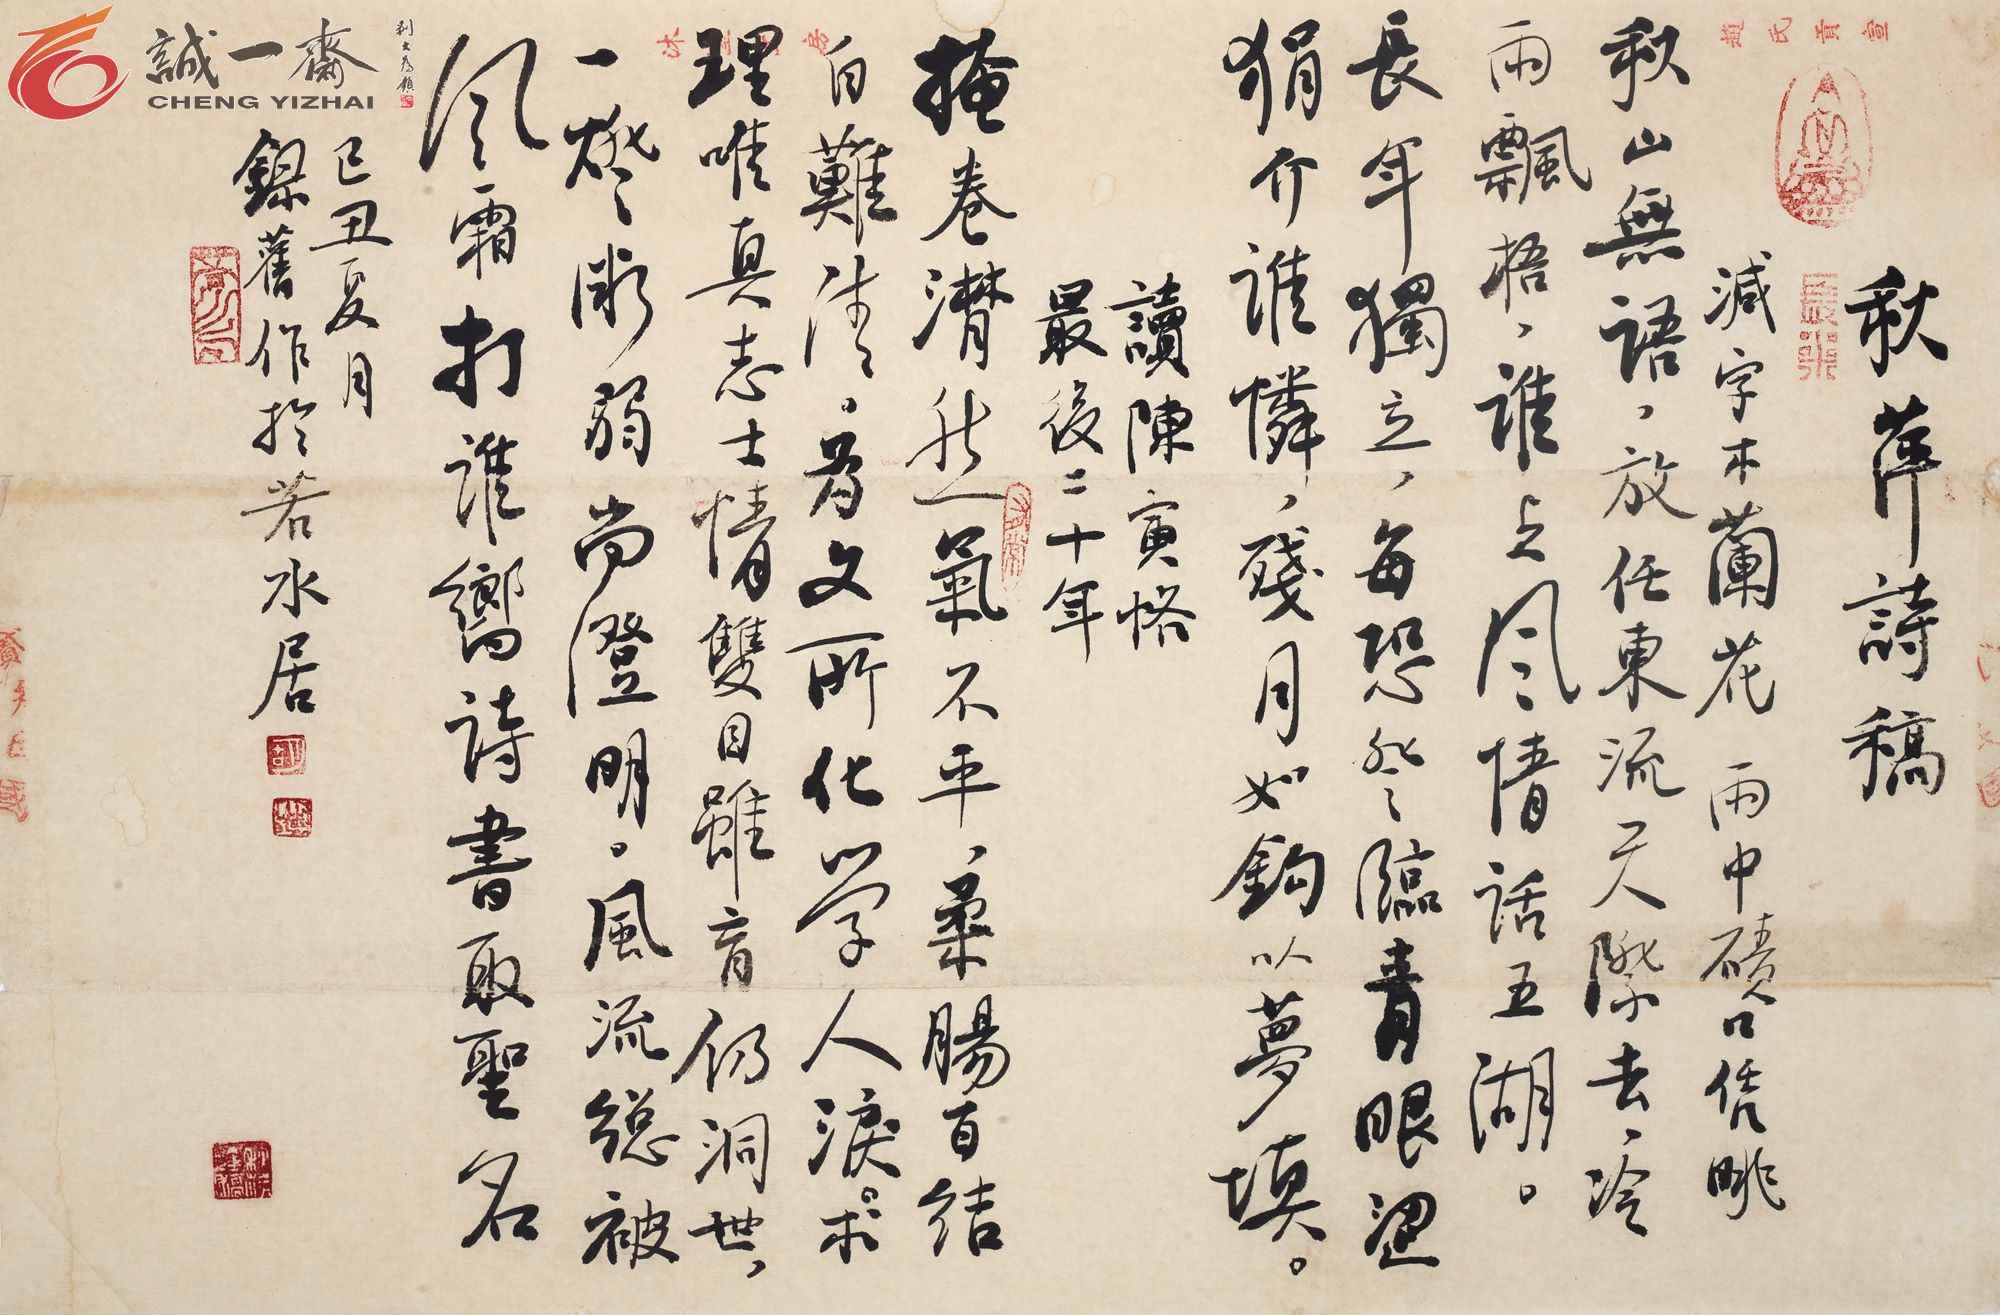 誠一齋
CHENG YIZHAI
劉大為題
秋萍詩稿
減字木蘭花 雨中磧口眺
秋山無語，放任東流天際去，冷
雨飄梧，誰与风情話五湖。
長年獨立，每恐登臨青眼湿
狷介誰憐，殘月如鈎以夢填。
讀陳寅恪
最後二十年
掩卷潸然氣不平，柔腸百結
自難清。為文所化學人淚。求
理唯真志士情雙目雖盲仍洞世，
一燈漸弱尚澄明。風流總被
风霜打誰嚮詩書取聖名
己丑夏月
錄舊作於若水居